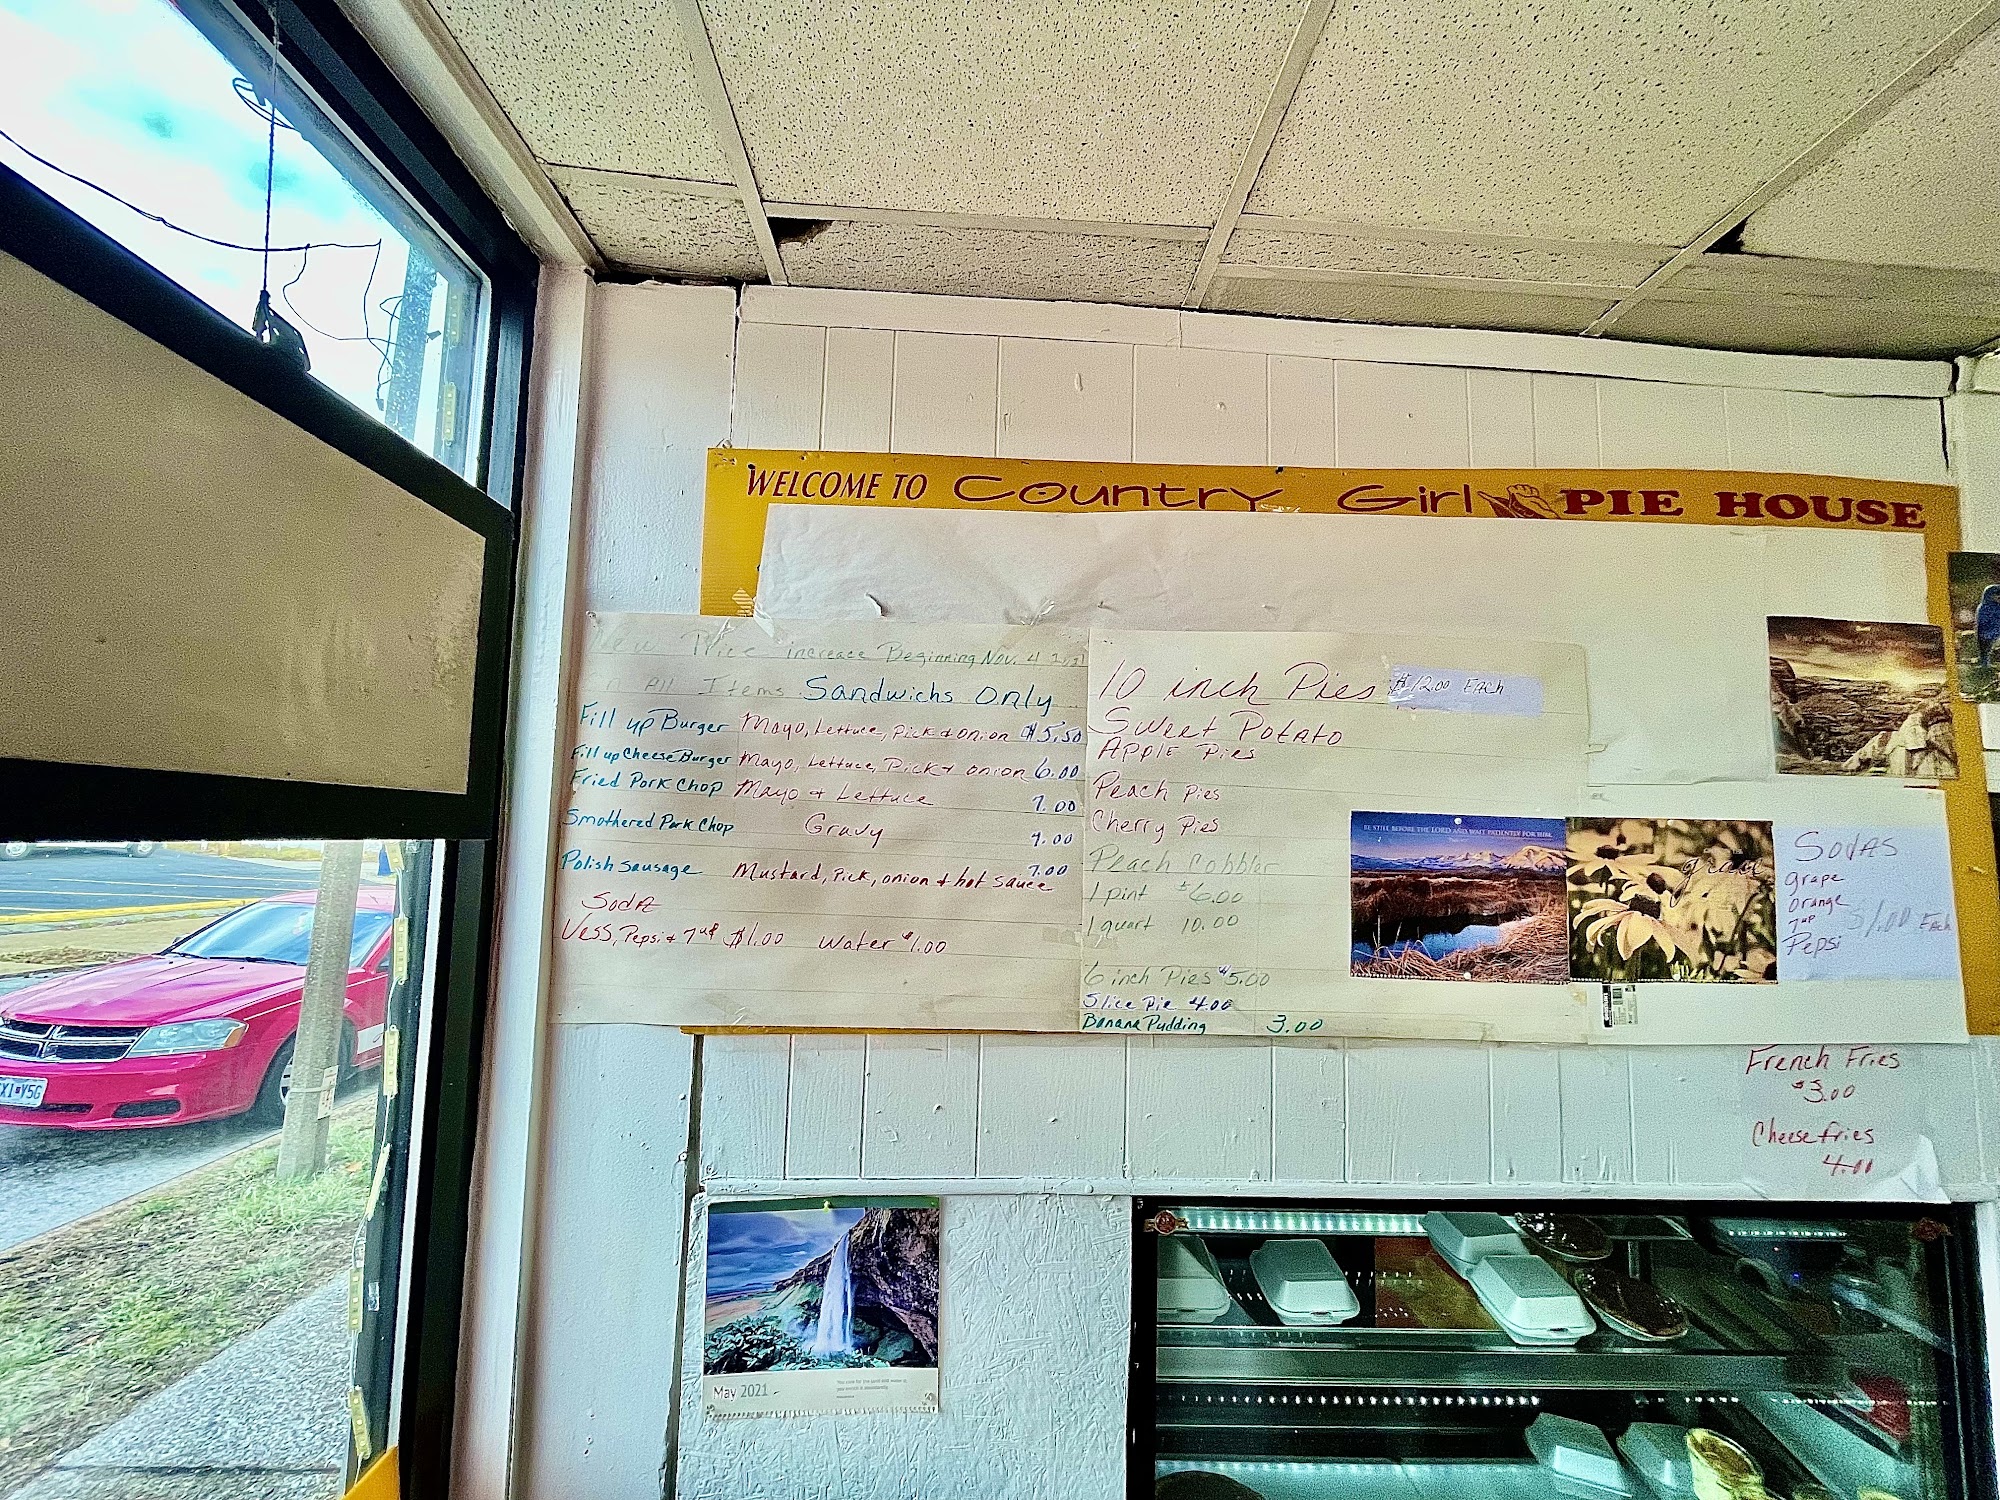 WELCOME TO Country Girl PIE HOUSE
New Price increase Beginning Nov. 4
on All Items Sandwichs Only
Fill up Burger Mayo, Lettuce, Pick & onion $5.50
Fill up Cheese Burger Mayo, Lettuce, Pick & onion 6.00
Fried Pork Chop Mayo & Lettuce 7.00
Smothered Pork Chop Gravy 9.00
Polish Sausage Mustard, Pick, onion & hot sauce 7.00
Soda
Vess, Pepsi & 7up $1.00 Water $1.00
10 inch Pies $12.00 EAch
Sweet Potato
Apple Pies
Peach Pies
Cherry Pies
Peach Cobbler
1 pint $6.00
1 quart 10.00
6 inch Pies $5.00
Slice Pie 4.00
Banana Pudding 3.00
BE STILL BEFORE THE LORD AND WAIT PATIENTLY FOR HIM.
grace
Sodas
grape
orange
7up
Pepsi
$1.00 Each
French Fries
$3.00
Cheese fries
4.00
May 2021